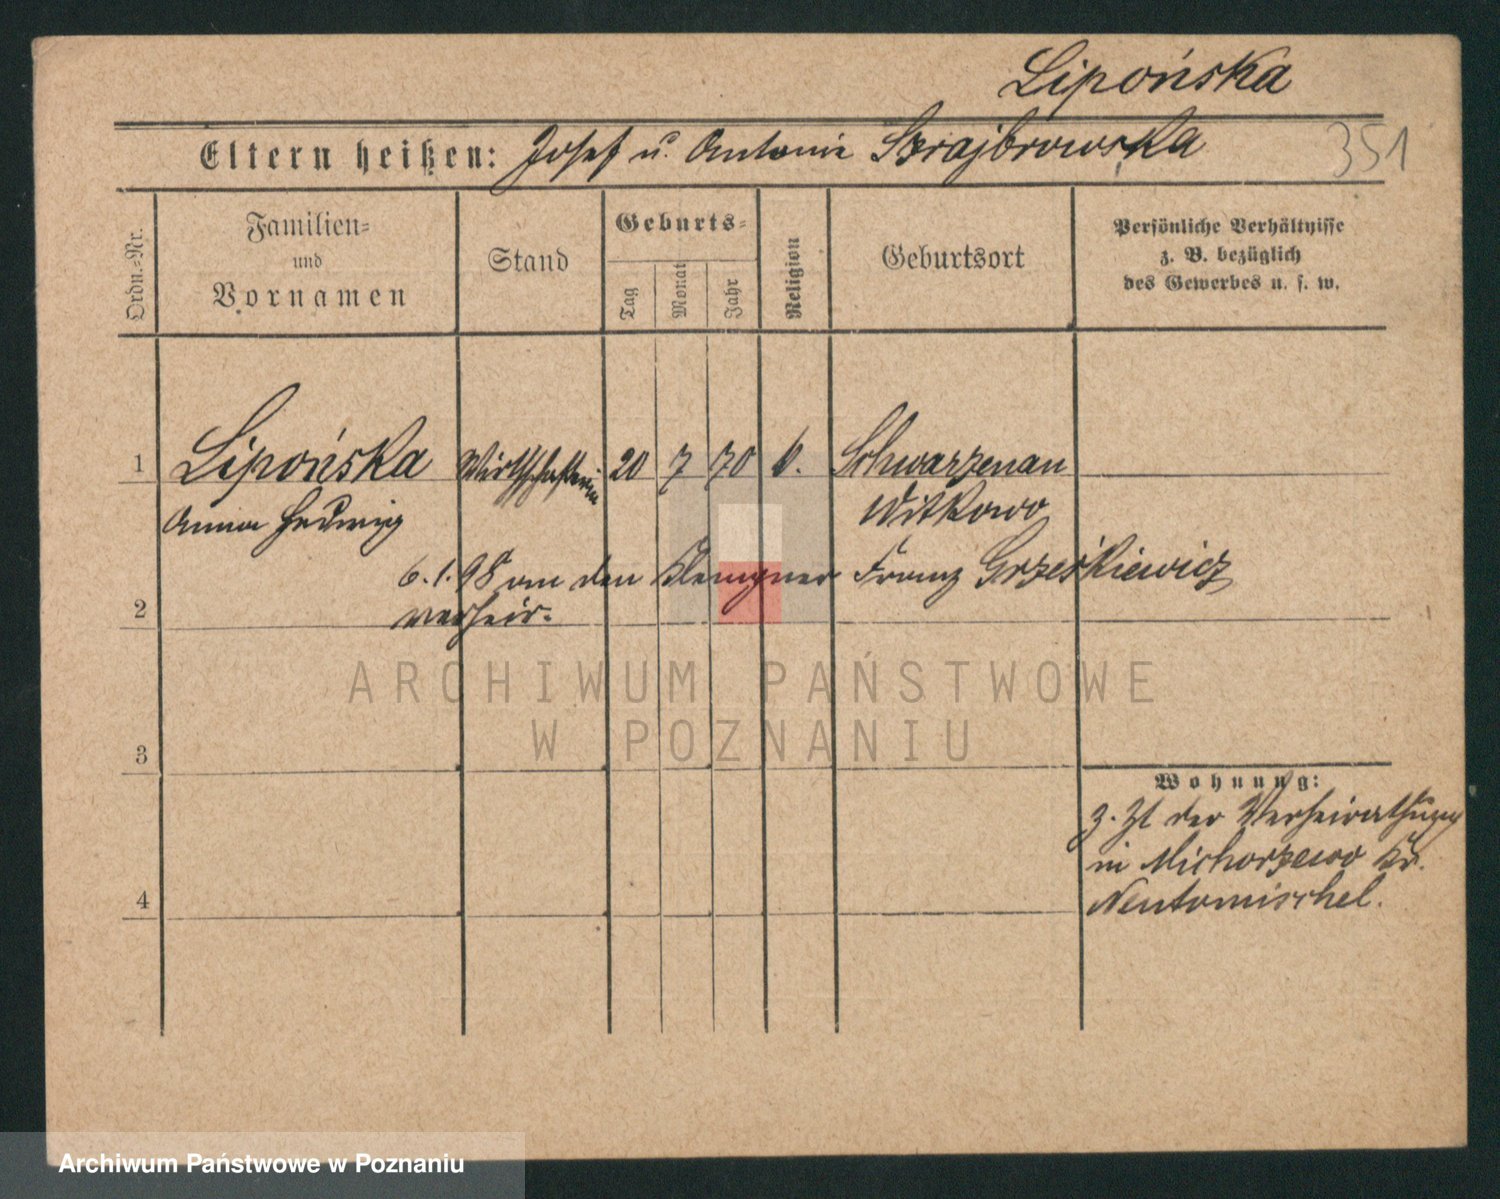 Lipońska
Eltern heißen: Josef u. Antonie Szrajbrowska
351
Ordn.-Nr.
Familien-
und
Vornamen
Stand
Geburts-
Tag
Monat
Jahr
Religion
Geburtsort
Persönliche Verhältnisse
z. B. bezüglich
des Gewerbes u. s. w.
1 Lipońska Wirthschafterin 20 7 70 k. Schwarzenau
Anna Hedwig Witkowo
6.1.98 an den Klempner Franz Grześkiewicz
2 verheir.
ARCHIWUM PAŃSTWOWE
W POZNANIU
3
Wohnung:
z. Zt der Verheirathung
in Michorzewo Kr.
4 Neutomischel.
Archiwum Państwowe w Poznaniu